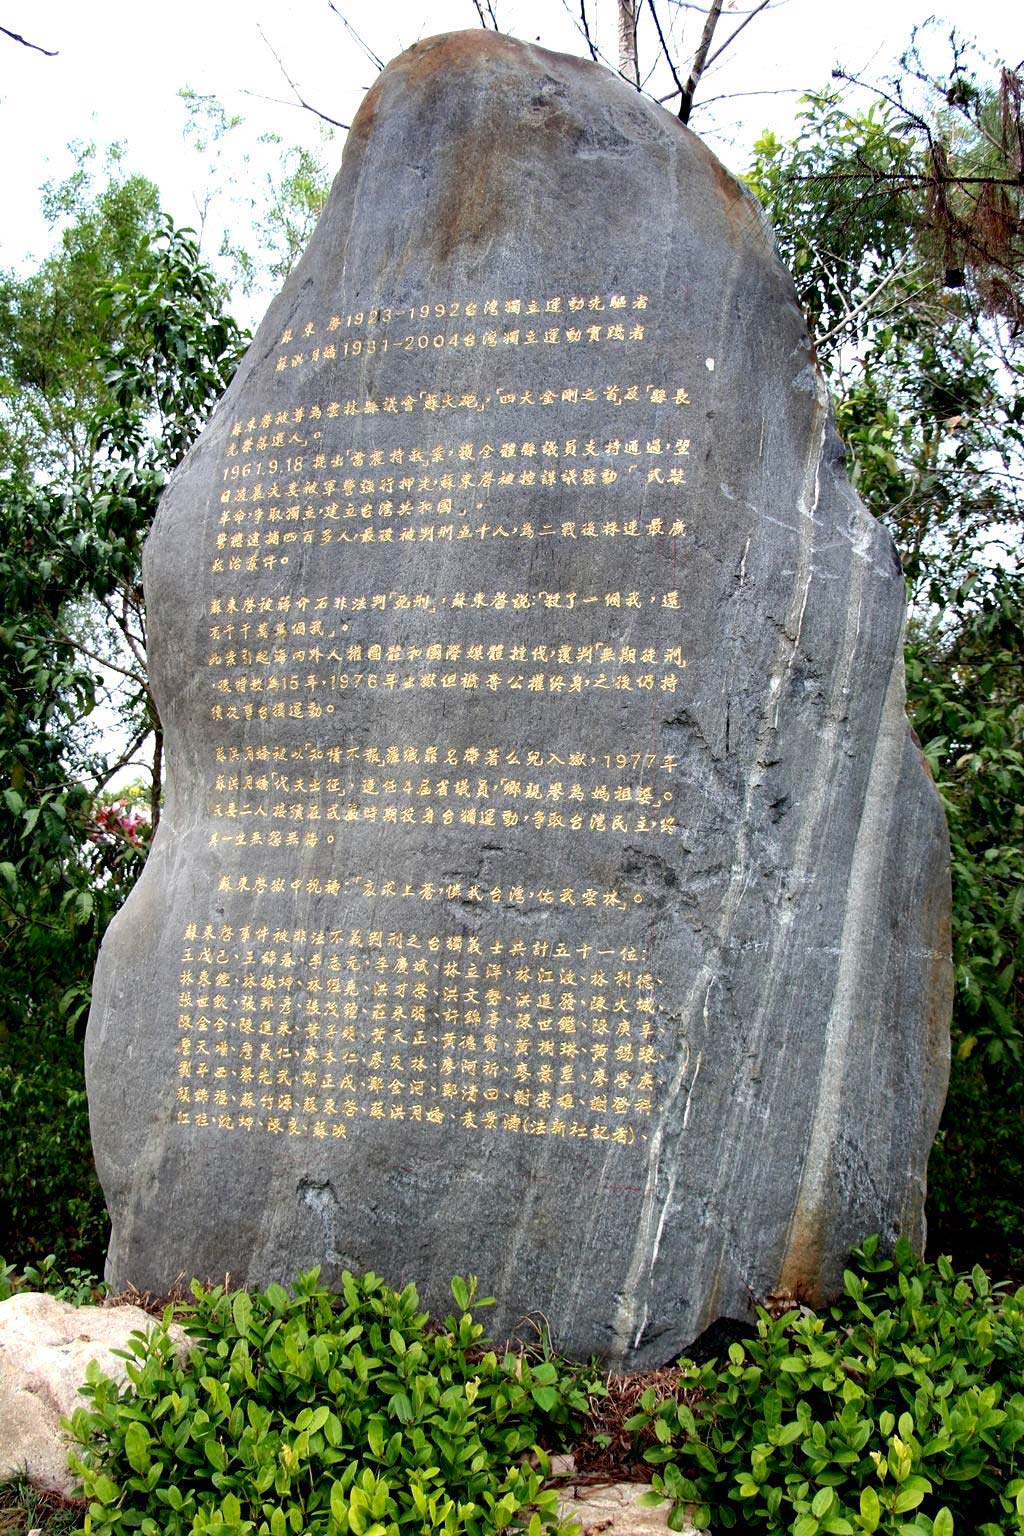 蘇東啓1923-1992台灣獨立運動先驅者
蘇洪月嬌1931-2004台灣獨立運動實踐者
蘇東啓被尊為雲林縣議會「蘇大砲」,「四大金剛之首」及「縣長
光榮落選人」。
1961.9.18 提出「雷震特赦」案,獲全體縣議員支持通過,翌
日凌晨夫妻被軍警強行押走,蘇東啓被控謀議發動「武裝
革命,爭取獨立,建立台灣共和國」。
警總逮捕四百多人,最後被判刑五十人,為二戰後株連最廣
政治案件。
蘇東啓被蔣介石非法判「死刑」,蘇東啓說:「殺了一個我,還
有千千萬萬個我」。
此案引起海內外人權團體和國際媒體撻伐,覆判「無期徒刑」
,後特赦為15年,1976年出獄但褫奪公權終身,之後仍持
續從事台獨運動。
蘇洪月嬌被以「知情不報」羅織罪名帶著么兒入獄,1977年
蘇洪月嬌「代夫出征」,連任4屆省議員,「鄉親譽為媽祖婆」。
夫妻二人接續在武嚴時期投身台獨運動,爭取台灣民主,終
其一生無怨無悔。
蘇東啓獄中祝禱:「哀求上蒼,供我台灣,佑我雲林」。
蘇東啓事件被非法不義判刑之台獨義士共計五十一位:
王戊己、王錦春、李志元、李慶斌、林立洋、林江波、林利德、
林東鏗、林振坤、林經堯、洪才榮、洪文慶、洪進發、陳火城、
張世欽、張邦彥、張茂鐘、莊來明、許錦亭、陳世鑑、陳庚辛、
陳金全、陳進來、黃善、黃天正、黃德賢、黃樹琳、黃錫琅、
詹天增、詹益仁、廖本仁、廖炎林、廖阿祈、廖景星、廖學庚、
劉平西、蔡光武、鄭正成、鄭金河、鄭清田、謝崇雄、謝登科、
顏錦福、蘇竹源、蘇東啓、蘇洪月嬌、袁景濤(法新社記者)、
江柱、沈坤、陳良、蘇映